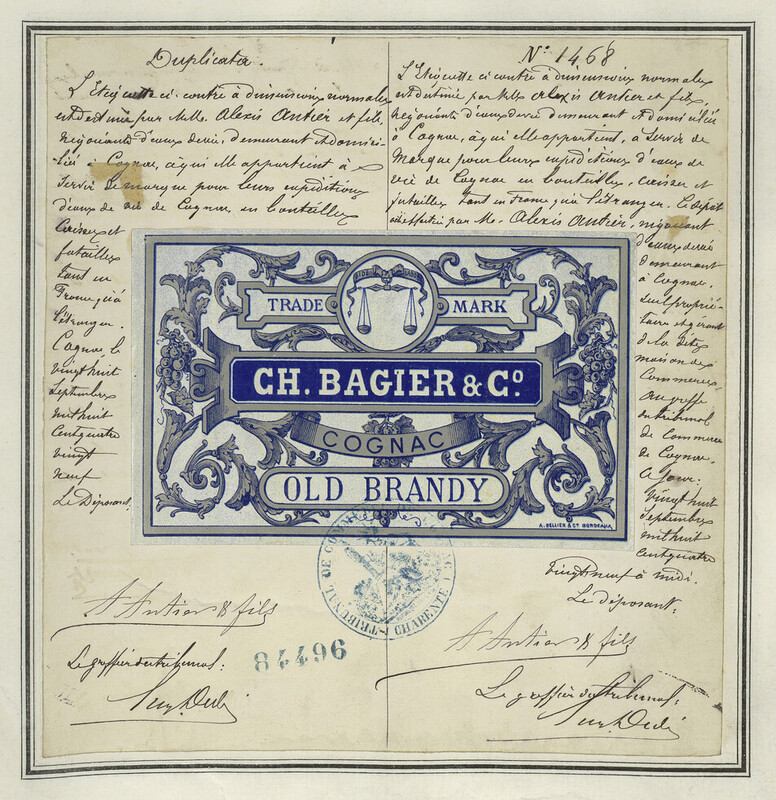 Duplicata.
L'Etiquette ci contre à dimensions normales
est destinée par MM. Alexis Antier et fils,
négociants d'eaux de vie, demeurant & domici-
liés à Cognac, à qui elle appartient à
servir de marque pour leurs expéditions
d'eaux de vie de Cognac, en bouteilles
Caisses et
futailles
tant en
France qu'à
l'étranger.
Cognac, le
vingt huit
Septembre
mil huit
cent quatre
vingt
neuf
Le Déposant,
A Antier & fils
Le greffier du tribunal:
No. 1468
L'Etiquette ci contre à dimensions normales
est destinée par MM. Alexis Antier et fils,
négociants d'eaux de vie demeurant & domiciliés
à Cognac, à qui elle appartient, à servir de
Marque pour leurs expéditions d'eaux de
vie de Cognac en bouteilles, caisses et
futailles tant en France qu'à l'étranger. Le dépôt
est effectué par M. Alexis Antier, négociant
d'eaux de vie
demeurant
à Cognac,
seul proprié-
taire et gérant
de la dite
maison de
Commerce,
au greffe
du tribunal
de Commerce
de Cognac,
ce jour
vingt huit
Septembre
mil huit
cent quatre
vingt neuf à midi.
Le déposant:
A Antier & fils
Le greffier du tribunal:
TRADE MARK
CH. BAGIER & Co.
COGNAC
OLD BRANDY
A. BELLIER & Co. BORDEAUX
TRIBUNAL DE COMM
CHARENTE
84496